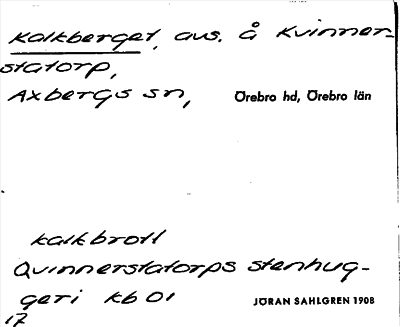 Kalkberget, avs. å Kvinner-
statorp,
Axbergs sn, Örebro hd, Örebro län
kalkbrott
Qvinnerstatorps stenhug-
geri kb 01 JÖRAN SAHLGREN 1908
17